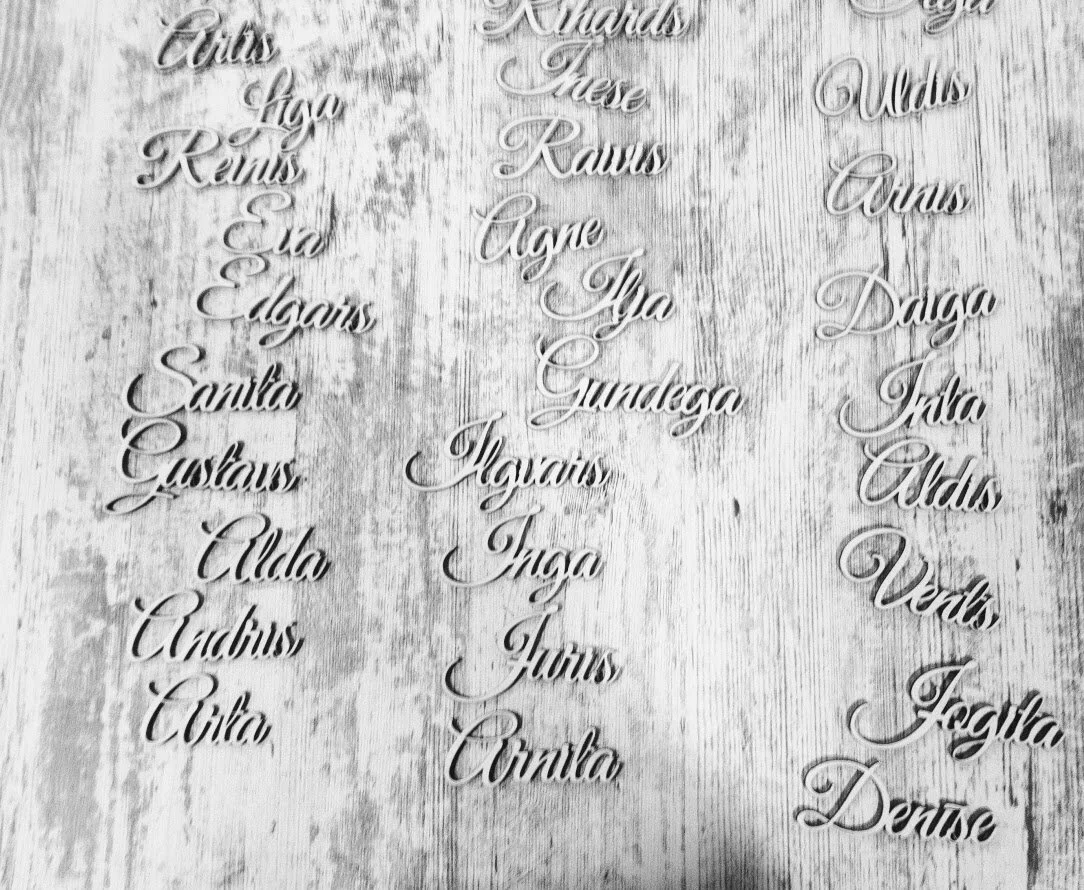 Artis
Līga
Reinis
Eva
Edgars
Sanita
Gustavs
Alda
Andris
Arta
Rihards
Inese
Raivis
Agne
Ilja
Gundega
Ilgvars
Inga
Juris
Arnita
Uldis
Arnis
Daiga
Inta
Aldis
Ventis
Jogita
Denīse